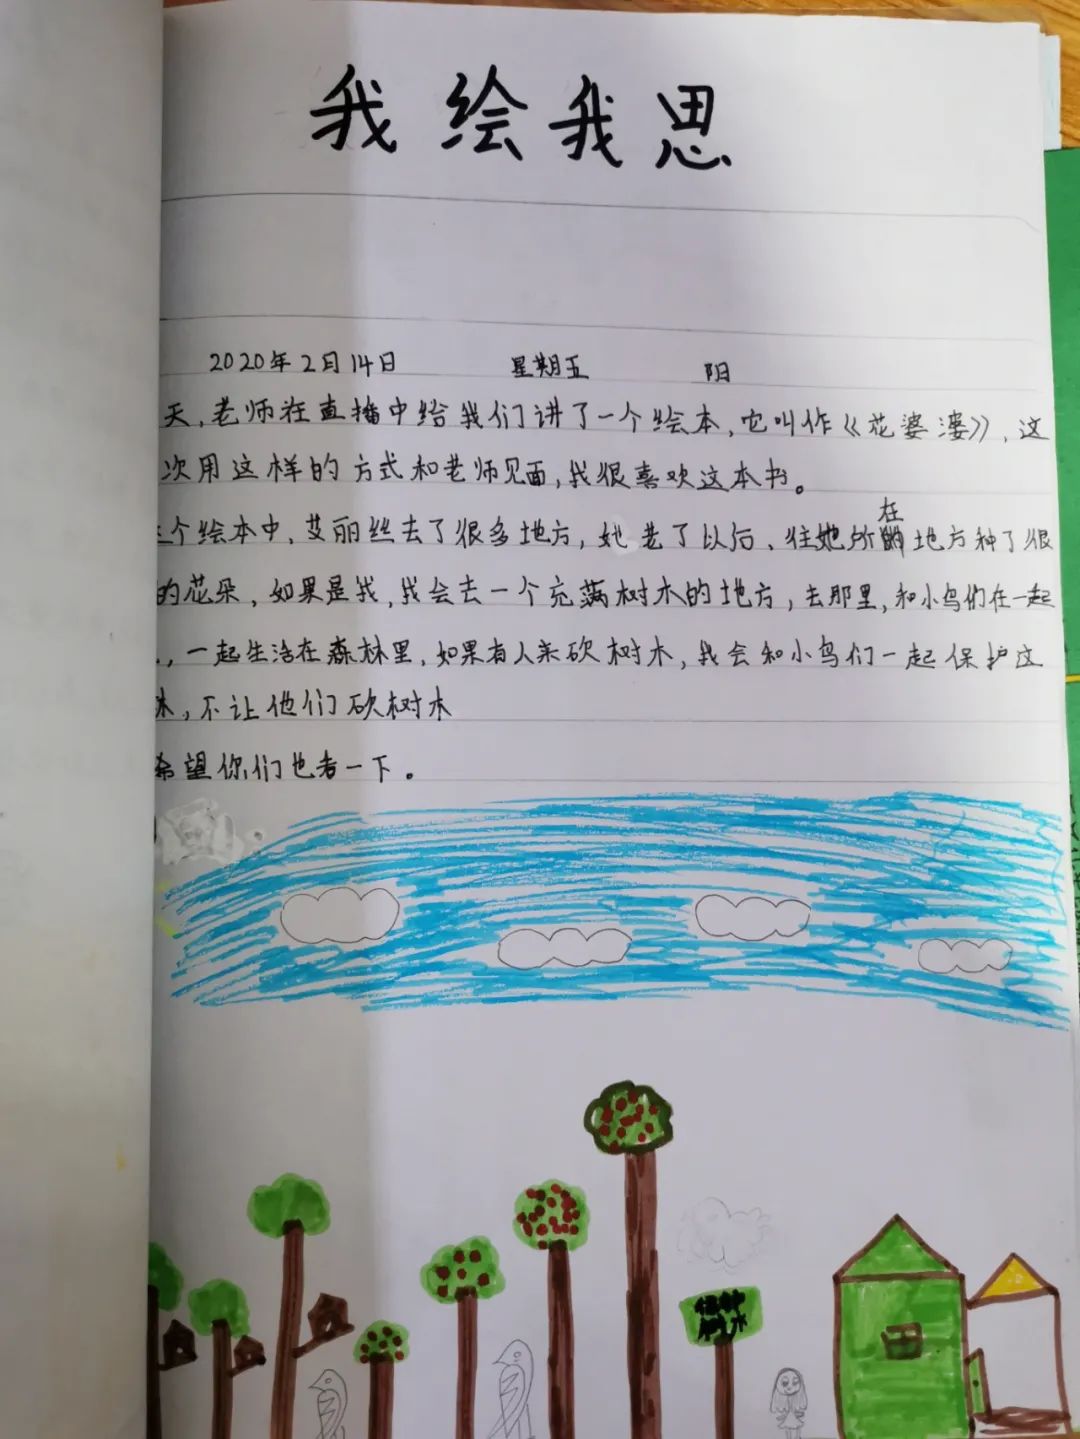 我绘我思
2020年2月14日 星期五 阳
天,老师在直播中给我们讲了一个绘本,它叫作《花婆婆》,这
次用这样的方式和老师见面,我很喜欢这本书。
个绘本中,艾丽丝去了很多地方,她老了以后、往她所在地方种了很
的花朵,如果是我,我会去一个充满树木的地方,去那里,和小鸟们在一起
,一起生活在森林里,如果有人来砍树木,我会和小鸟们一起保护这
林,不让他们砍树木
希望你们也看一下。
保护
树木